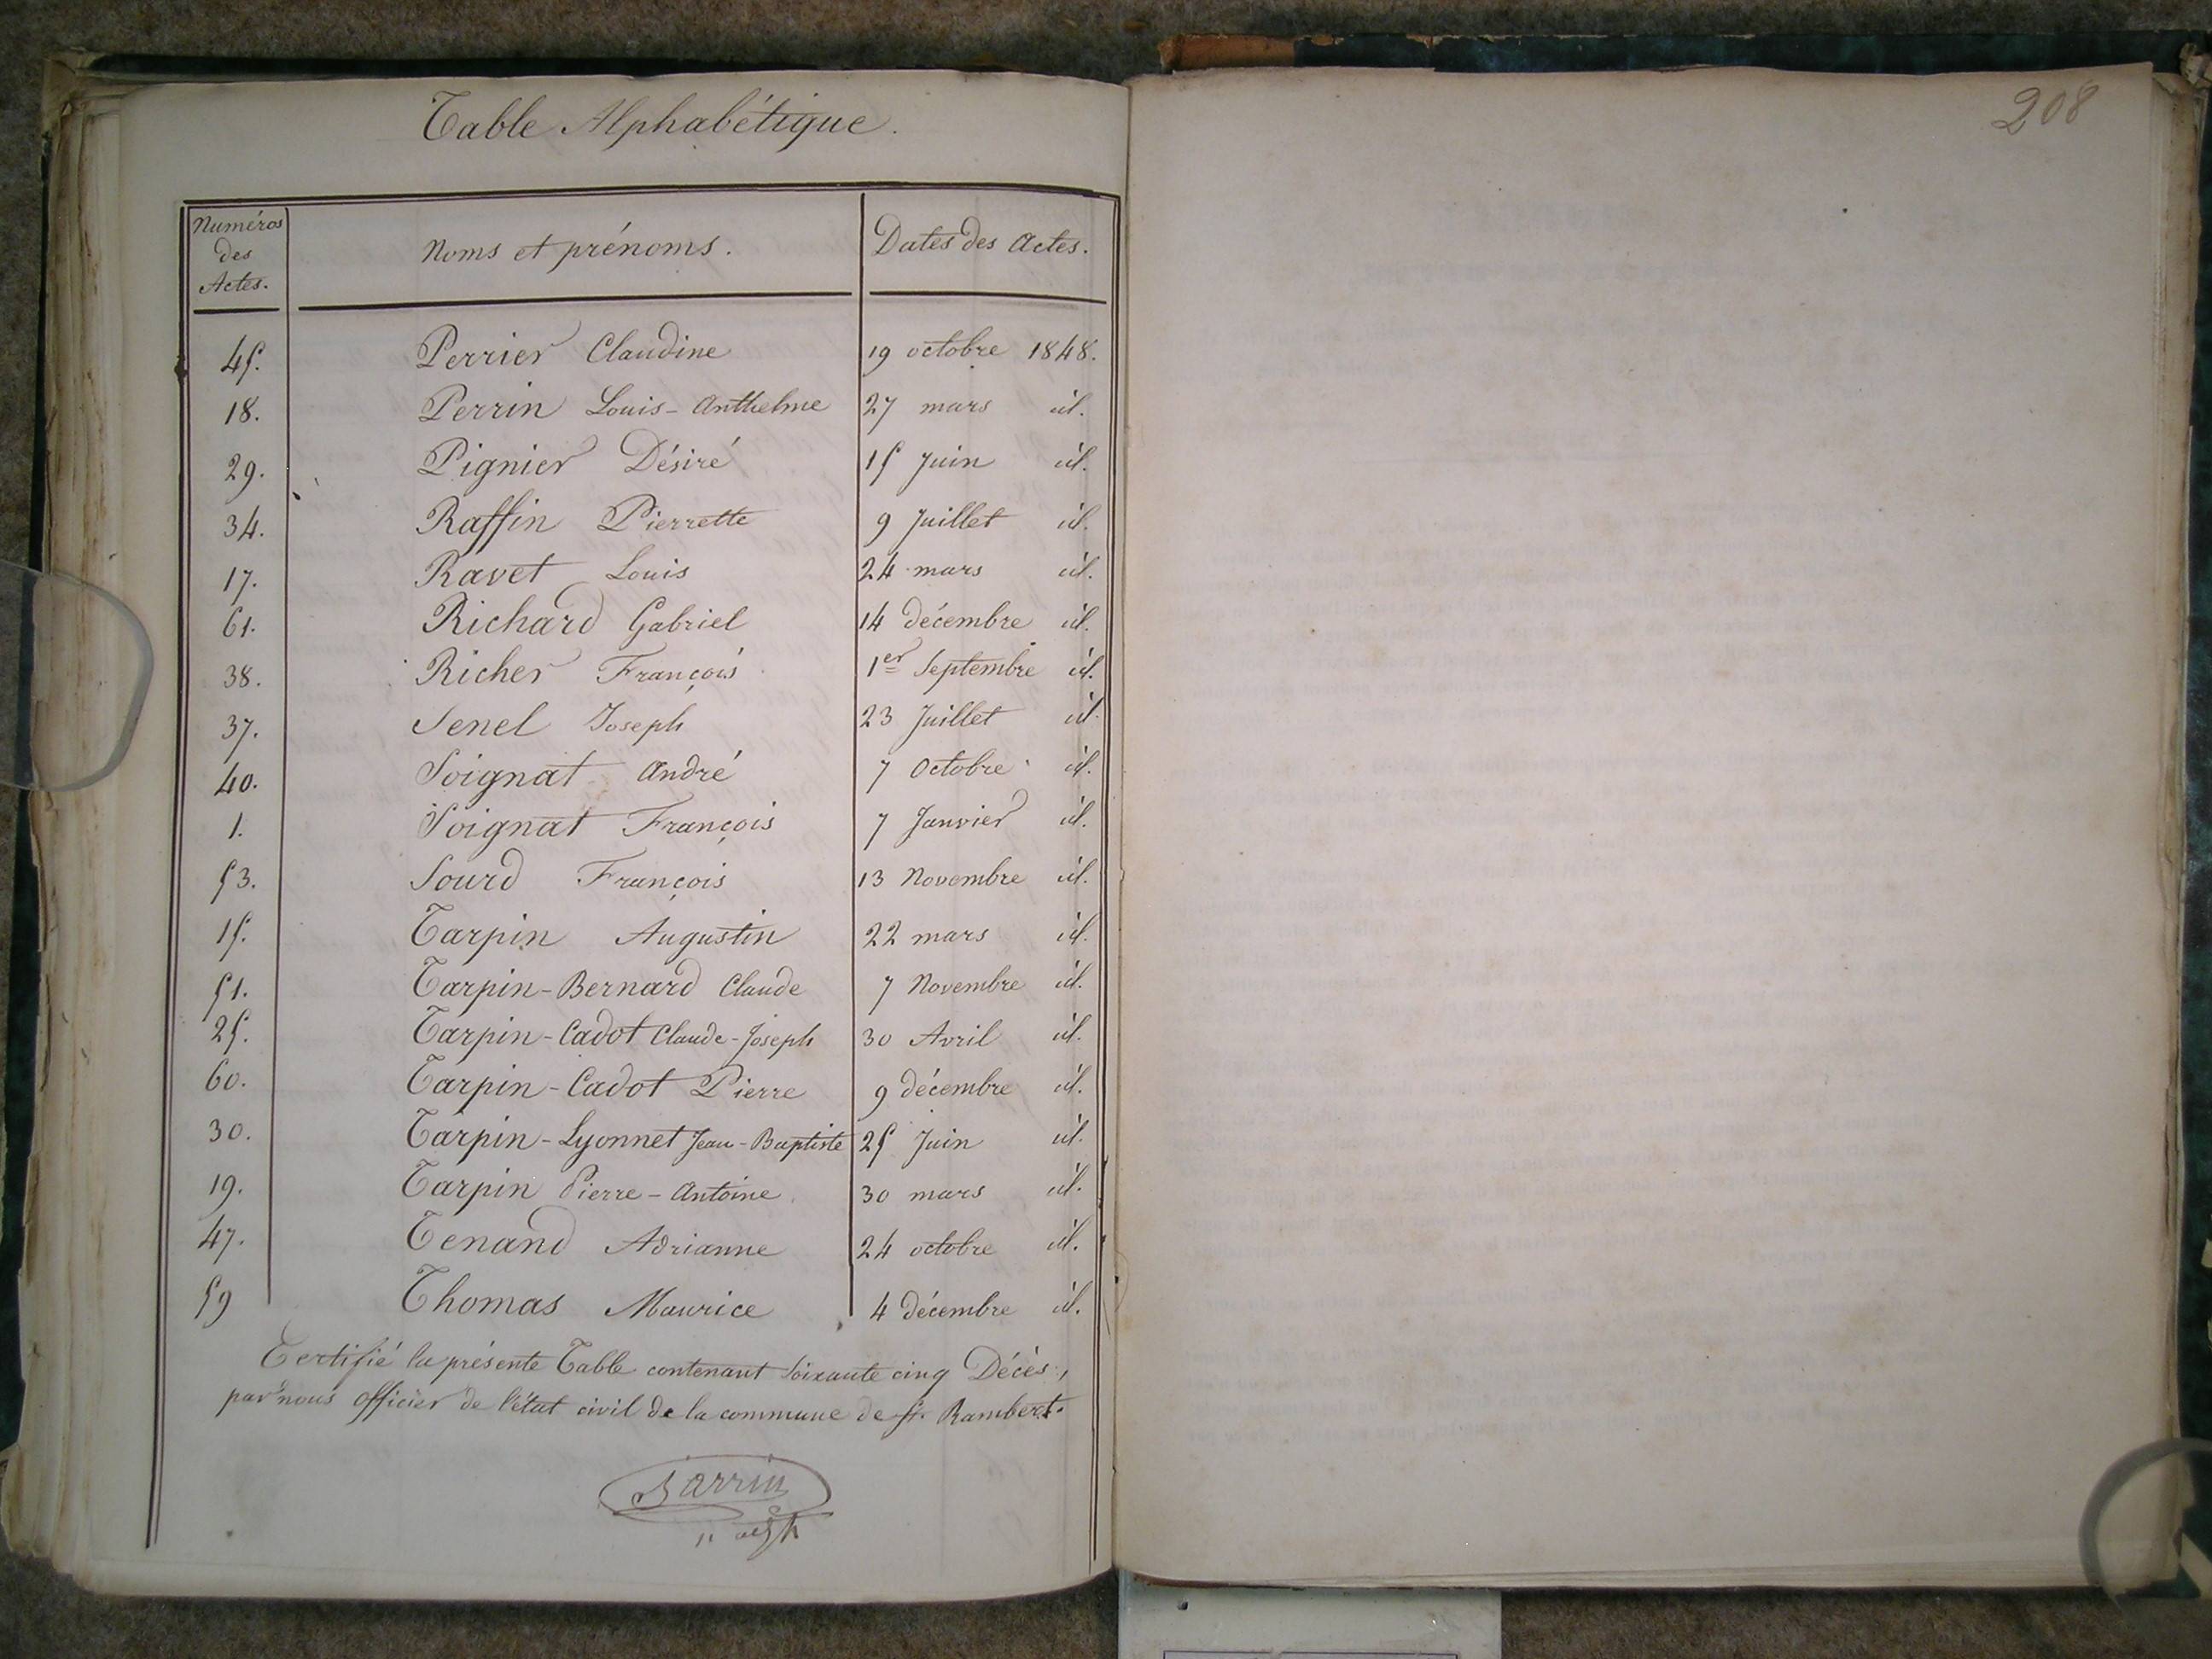 208
Table Alphabétique.
Numéros des Actes. Noms et prénoms. Dates des Actes.
45. Perrier Claudine 19 octobre 1848.
18. Perrin Louis-Anthelme 27 mars id.
29. Pignier Désiré 15 Juin id.
34. Raffin Pierrette 9 Juillet id.
17. Ravet Louis 24 mars id.
61. Richard Gabriel 14 décembre id.
38. Richer François 1er Septembre id.
37. Senel Joseph 23 Juillet id.
40. Soignat André 7 Octobre id.
1. Soignat François 7 Janvier id.
53. Sourd François 13 Novembre id.
15. Tarpin Augustin 22 mars id.
51. Tarpin-Bernard Claude 7 Novembre id.
25. Tarpin-Cadot Claude-Joseph 30 Avril id.
60. Tarpin-Cadot Pierre 9 décembre id.
30. Tarpin-Lyonnet Jean-Baptiste 25 Juin id.
19. Tarpin Pierre-Antoine 30 mars id.
47. Tenand Adrianne 24 octobre id.
59 Thomas Maurice 4 décembre id.
Certifié la présente Table contenant soixante cinq Décès,
par nous officier de l'état civil de la commune de St. Rambert.